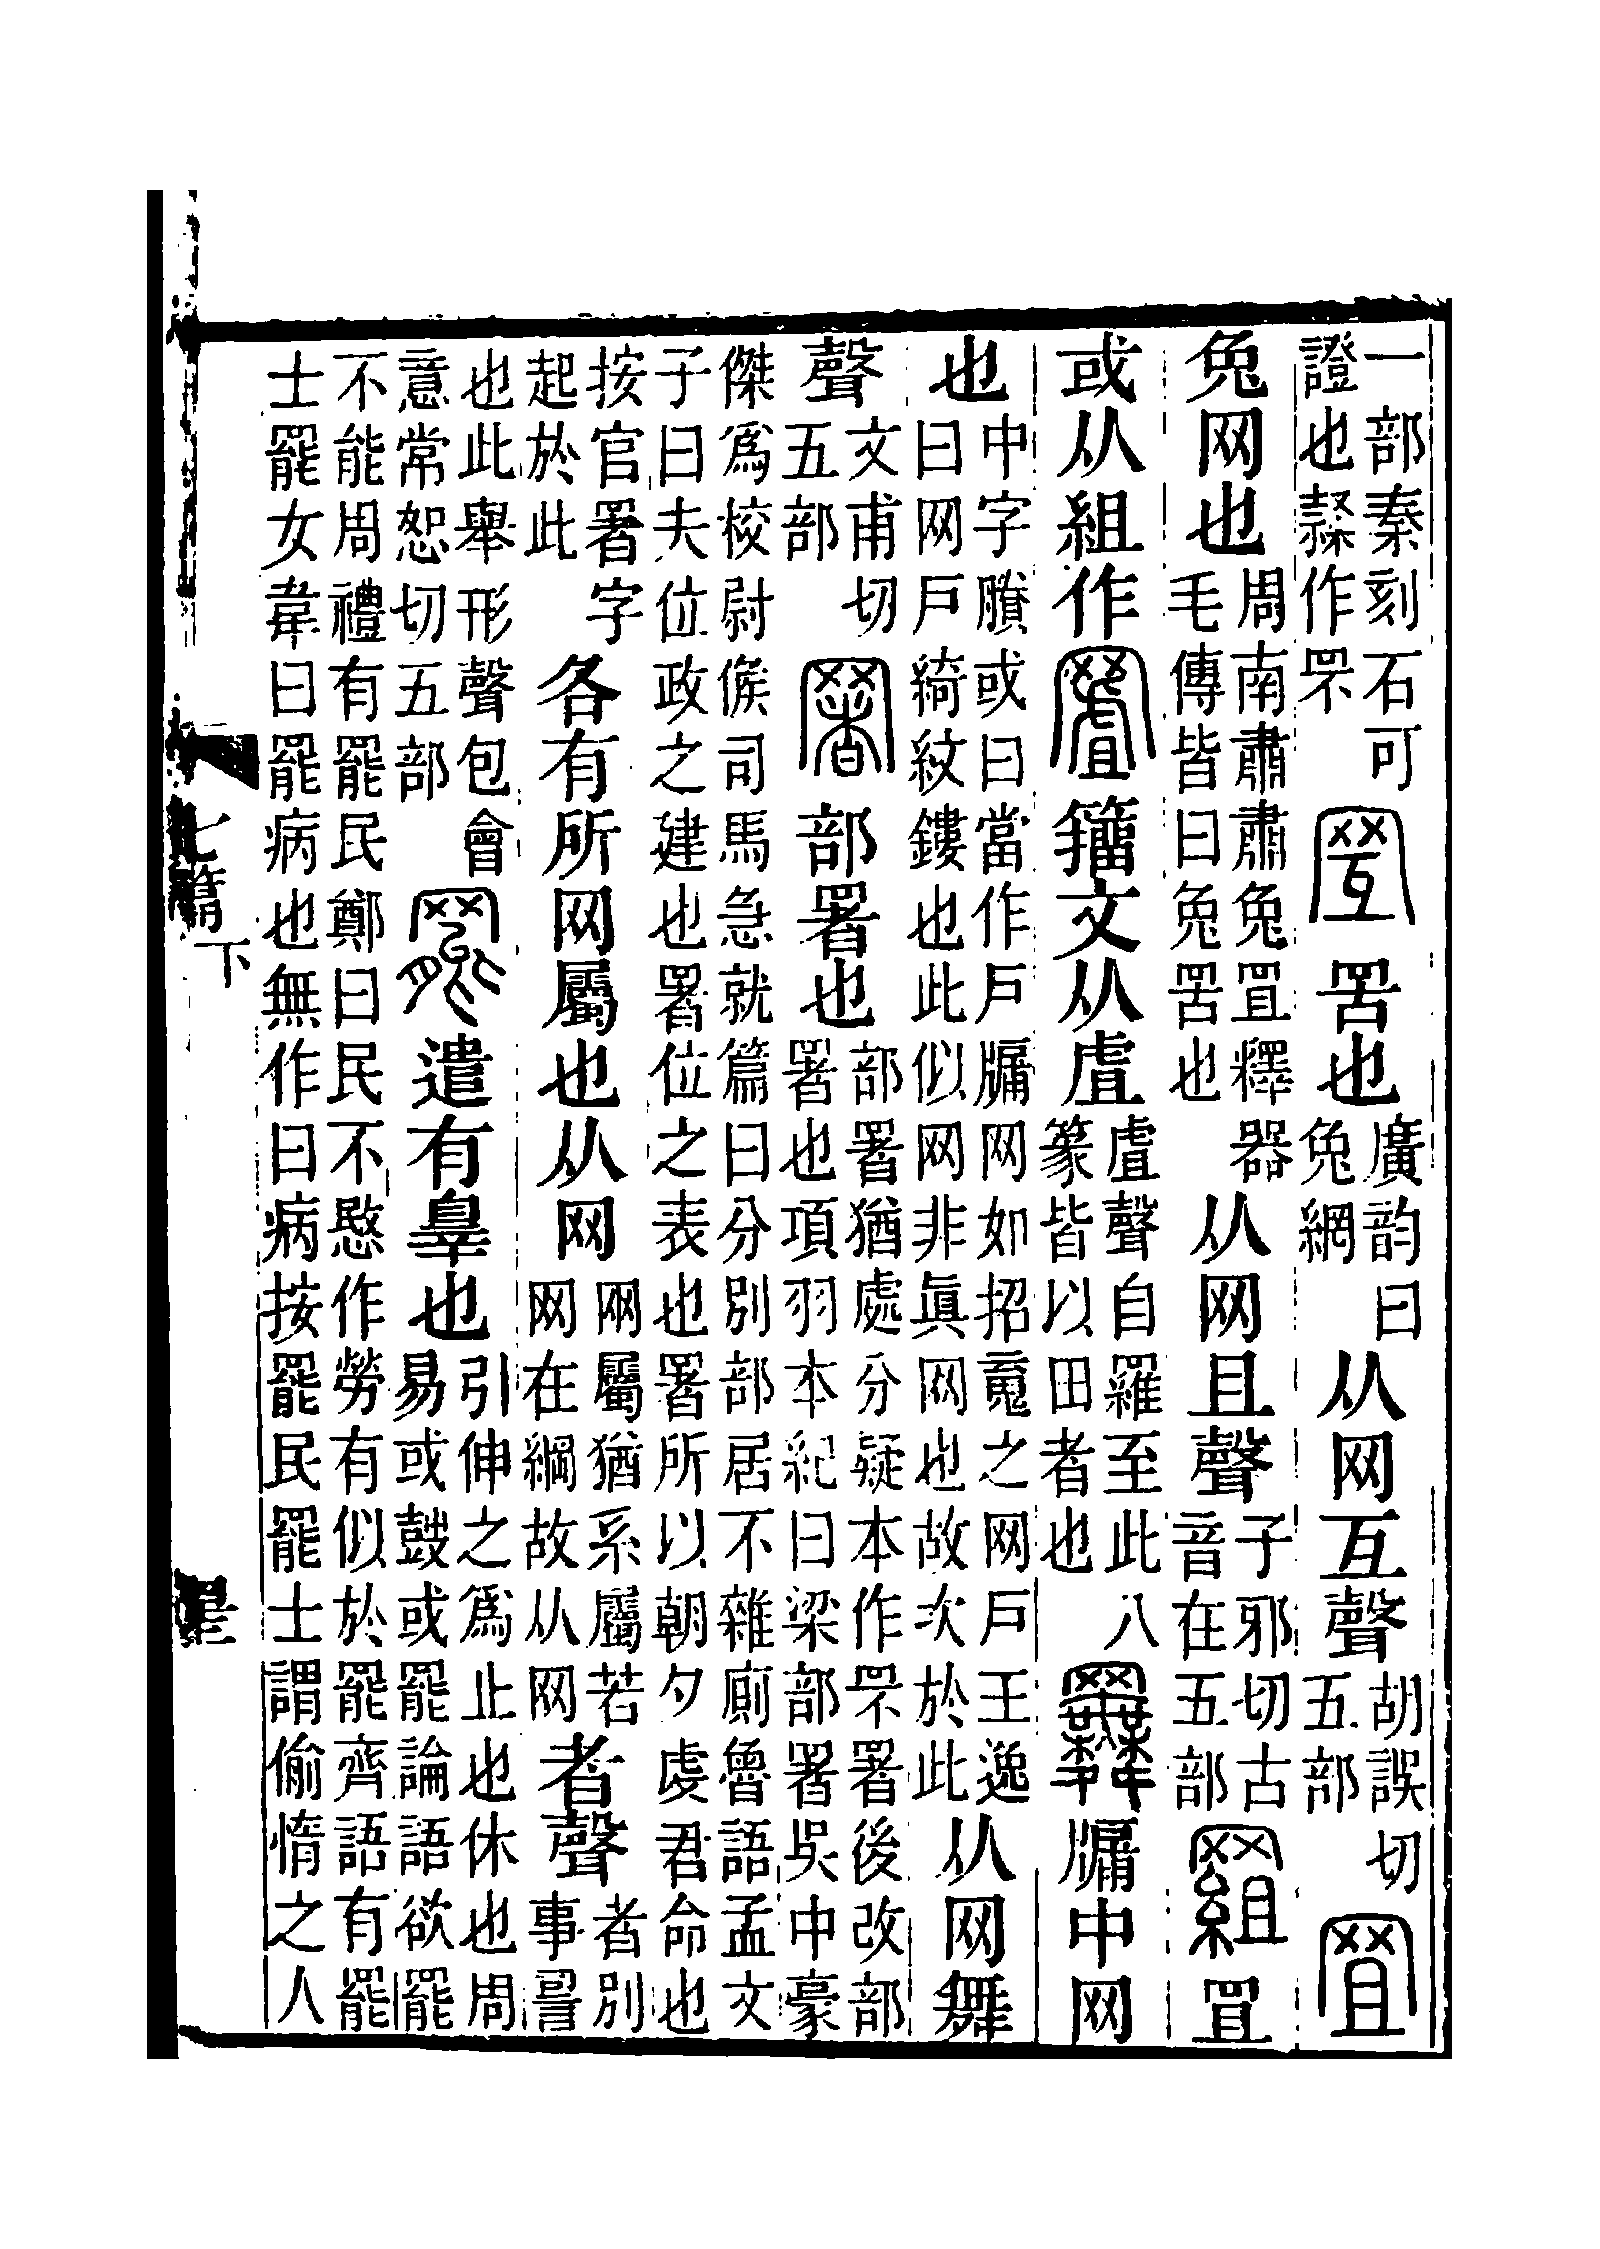 一部秦刻石可
證也隸作罘
罟也
廣韵曰
兔網
从网互聲
胡誤切
五部
兔网也
周南肅肅兔罝釋器
毛傳皆曰兔罟也
从网且聲
子邪切古
音在五部
罝
或从組作
籒文从虘
虘聲自羅至此八
篆皆以田者也
牖中网
也
中字賸或曰當作戶牖网如招䰟之网戶王逸
曰网戶綺紋鏤也此似网非眞网也故次於此
从网舞
聲
文甫切
五部
部署也
部署猶處分疑本作罘署後改部
署也項羽本紀曰梁部署吳中豪
傑爲校尉𠊱司馬急就篇曰分別部居不雜廁魯語孟文
子曰夫位政之建也署位之表也署所以朝夕虔君命也
按官署字
起於此
各有所网屬也从网
网屬猶系屬若
网在綱故从网
者聲
者別
事䛐
也此舉形聲包會
意常恕切五部
遣有辠也
引伸之爲止也休也周
易或鼓或罷論語欲罷
不能周禮有罷民鄭曰民不愍作勞有似於罷齊語有罷
士罷女韋曰罷病也無作曰病按罷民罷士謂偷惰之人
七篇下